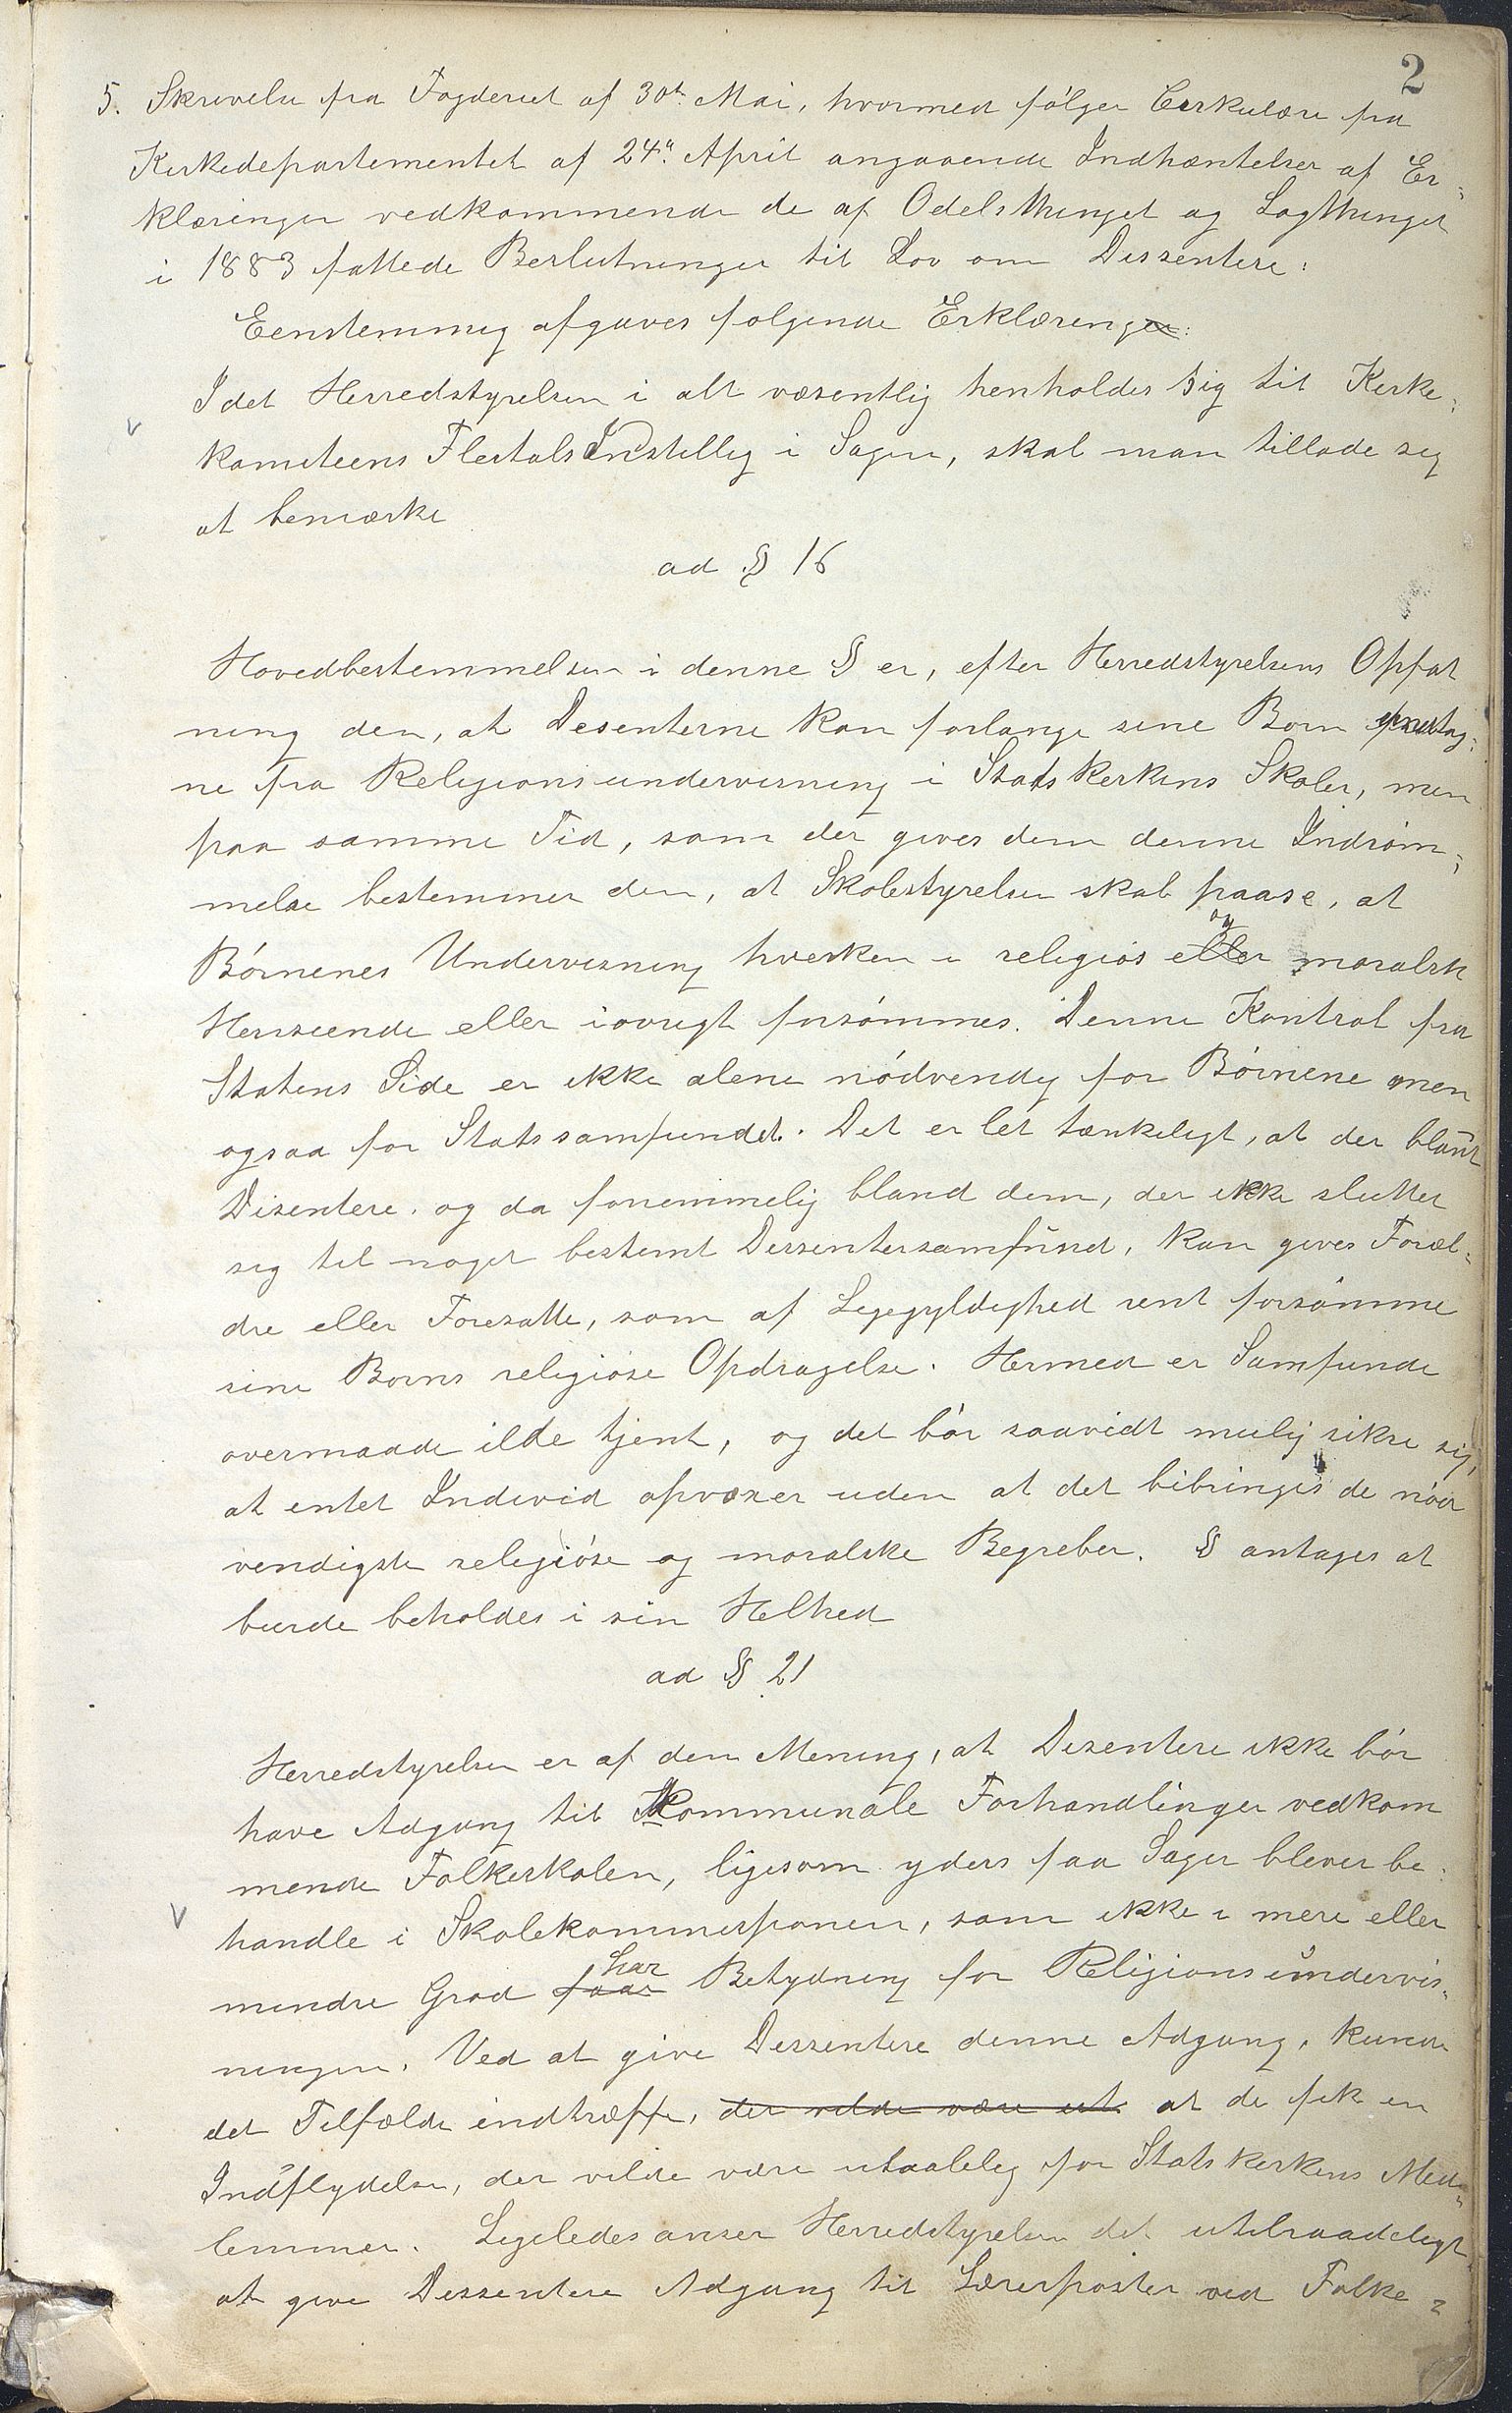 2
5. Skrivelse fra Fogderiet af 30te Mai, hvormed følger Cirkulære fra
Kirkedepartementet af 24de April angaaende Indhæntelser af Er-
klæringer vedkommende de af Odelsthinget og Lagthinget
i 1883 fattede Beslutninger til Lov om Dissentere:
Eenstemmig afgaves følgende Erklæring:
Idet Herredstyrelsen i alt væsentlig henholder sig til Kirke-
komiteens Flertals Instillig i Sagen, skal man tillade sig
at bemærke
ad § 16
Hovedbestemmelsen i denne § er, efter Herredstyrelsens Opfat
ning den, at Desenterne kan forlange sine Børn fritag-
ne fra Religionsundervisning i Statskirkens Skoler, men
paa samme Tid, som der gives dem denne Indrøm-
melse bestemmer den, at Skolestyrelsen skal paase, at
Børnenes Undervisning hverken i religiøs og moralsk
Henseende eller iøvrigt forsømmes. Denne Kontrol fra
Statens Side er ikke alene nødvendig for Børnene men
ogsaa for Statssamfundet. Det er let tænkeligt, at der blant
Disentere, og da fornemmelig bland dem, der ikke slutter
sig til noget bestemt Dissentersamfund, kan gives Foræl-
dre eller Foresatte, som af Ligegyldighed rent forsømme
sine Børns religiøse Opdragelse. Hermed er Samfunde
overmaade ilde tjent, og det bør saavidt mulig sikre sig,
at intet Individ opvoxer uden at det bibringes de nød
vendigste religiøse og moralske Begreber. § antages at
burde beholdes i sin Helhed
ad § 21
Herredstyrelsen er af den Mening, at Disentere ikke bør
have Adgang til Kommunale Forhandlinger vedkom
mende Folkeskolen, ligesom yders faa Sager blever be-
handle i Skolekommisjonen, som ikke i mere eller
mindre Grad har Betydning for Religionsundervis-
ningen. Ved at give Dissentere denne Adgang, kunde
det Tilfælde indtræffe, der vilde være ut at de fik en
Indflydelse, der vilde være utaalelig for Statskirkens Med-
lemmer. Ligeledes anser Herredstyrelsen det utilraadeligt
at give Dissentere Adgang til Lærerposter ved Folke-